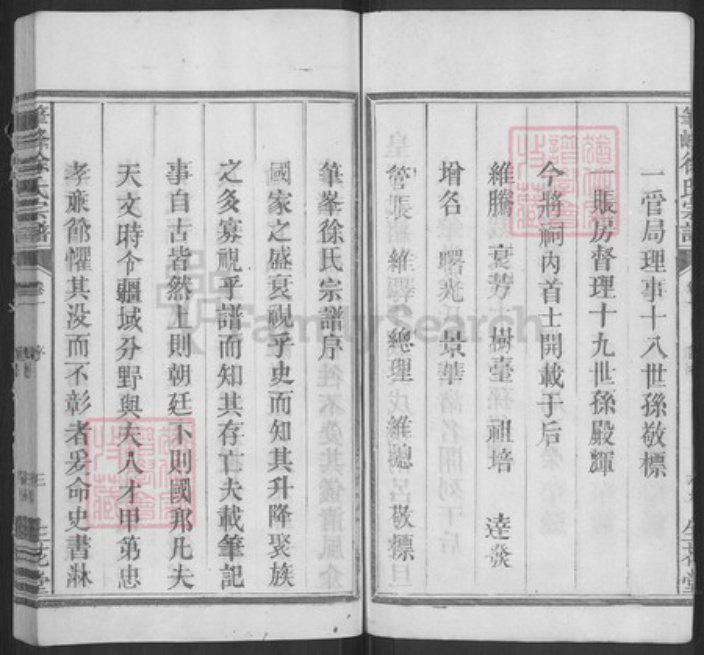 一管局理事十八世孫敬標
一賬房督理十九世孫殿輝
今將嗣內首士開載于后
維騰 袞芳 樹臺 祖培 達發
增名 曙光 景華
管賬 維驛 總理 維總 呂敬標
筆峯徐氏宗譜序
國家之盛衰視乎史而知其升降聚族
之多寡視乎譜而知其存亡夫載筆記
事自古皆然上則朝廷下則國邦凡夫
天文時令疆域分野與夫人才甲第忠
孝廉節懼其没而不彰者爰命史書淋
筆峰徐氏宗譜
卷一
序
三
生花堂
FamilySearch